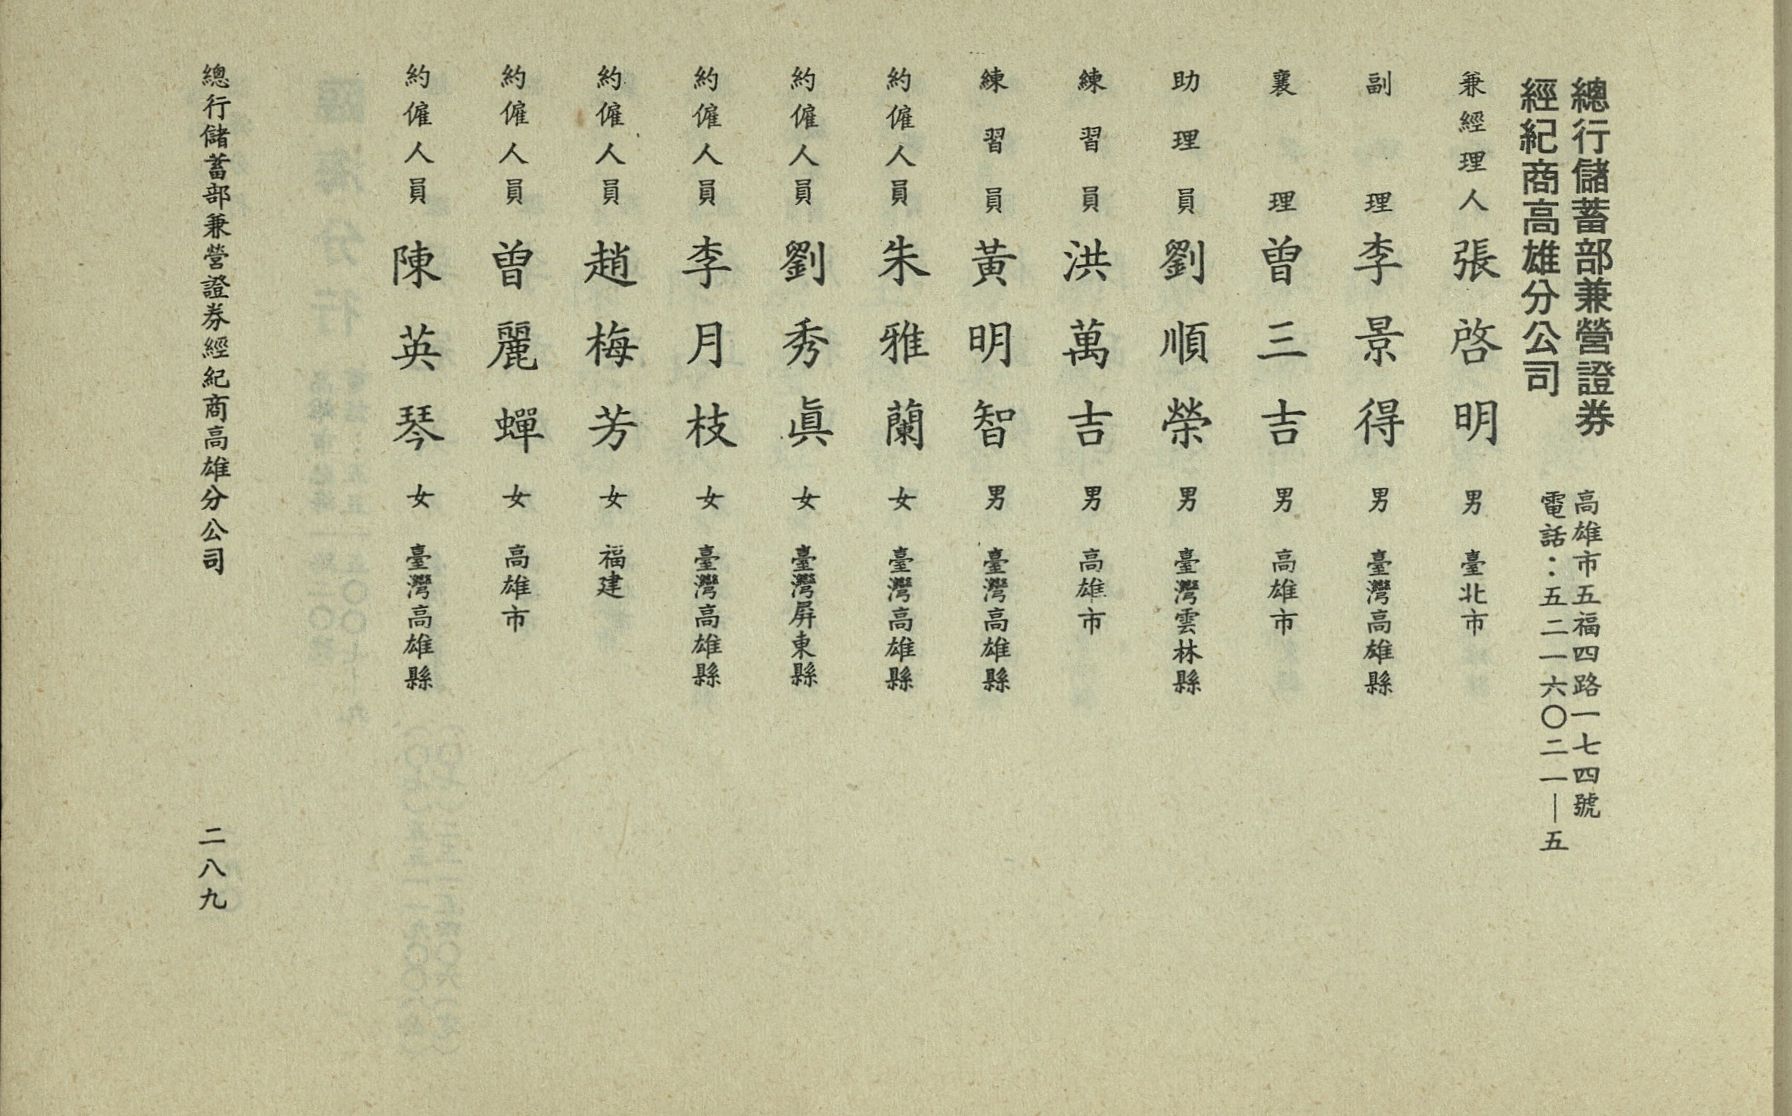 總行儲蓄部兼營證券
經紀商高雄分公司
高雄市五福四路一七四號
電話：五二一六〇二一—五
兼經理人 張啓明 男 臺北市
副理 李景得 男 臺灣高雄縣
襄理 曾三吉 男 高雄市
助理員 劉順榮 男 臺灣雲林縣
練習員 洪萬吉 男 高雄市
練習員 黃明智 男 臺灣高雄縣
約僱人員 朱雅蘭 女 臺灣高雄縣
約僱人員 劉秀眞 女 臺灣屏東縣
約僱人員 李月枝 女 臺灣高雄縣
約僱人員 趙梅芳 女 福建
約僱人員 曾麗蟬 女 高雄市
約僱人員 陳英琴 女 臺灣高雄縣
總行儲蓄部兼營證券經紀商高雄分公司
二八九